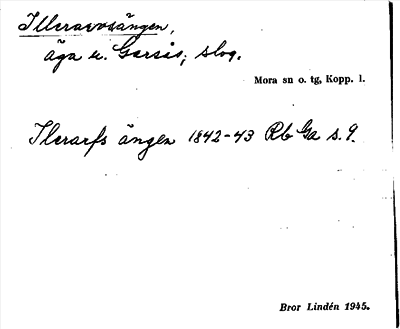 Illerarvsängen,
äga u. Garsås, slog.
Mora sn o. tg, Kopp. l.
Ilerarfs ängen 1842-43 Rb Ga s. 9.
Bror Lindén 1945.